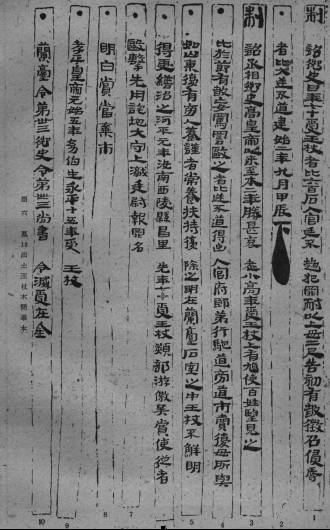 制詔御史曰年七十受王杖者比六百石入宮廷不趨犯罪耐以上毋二尺告劾有敢徵召侵辱
者比大逆不道建始二年九月甲辰下
制詔丞相御史高皇帝以來至本二年勝甚哀老小高年受王杖上有鳩使百姓望見之
比於節有敢妄罵詈毆之者比逆不道得出入官府郎第行馳道旁道市賣復毋所與
如山東復有旁人養謹者常養扶持復除之明在蘭臺石室之中王杖不鮮明
得更繕治之河平元年汝南西陵縣昌里先年七十受王杖熲部游徼吳賞使從者
毆擊先用訴地大守上讞廷尉報罪名
明白賞當棄市
孝平皇帝元始五年幼伯生永平十五年受王杖
蘭臺令第卅三御史令第卌三尚書令滅受在金
圖六 墓18出土王杖木簡摹本
10 9 8 7 6 5 4 3 2 1